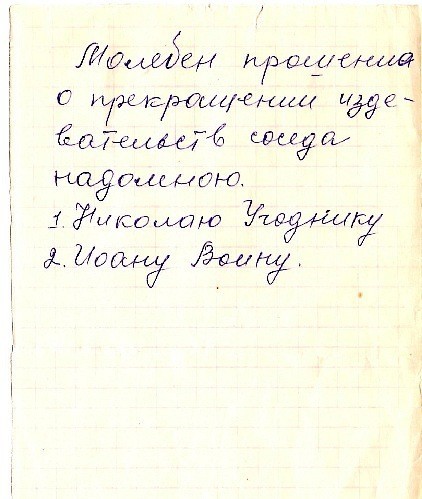 Молебен прошения
о прекращении изде-
вательств соседа
надомною.
1. Николаю Угоднику
2. Иоану Воину.